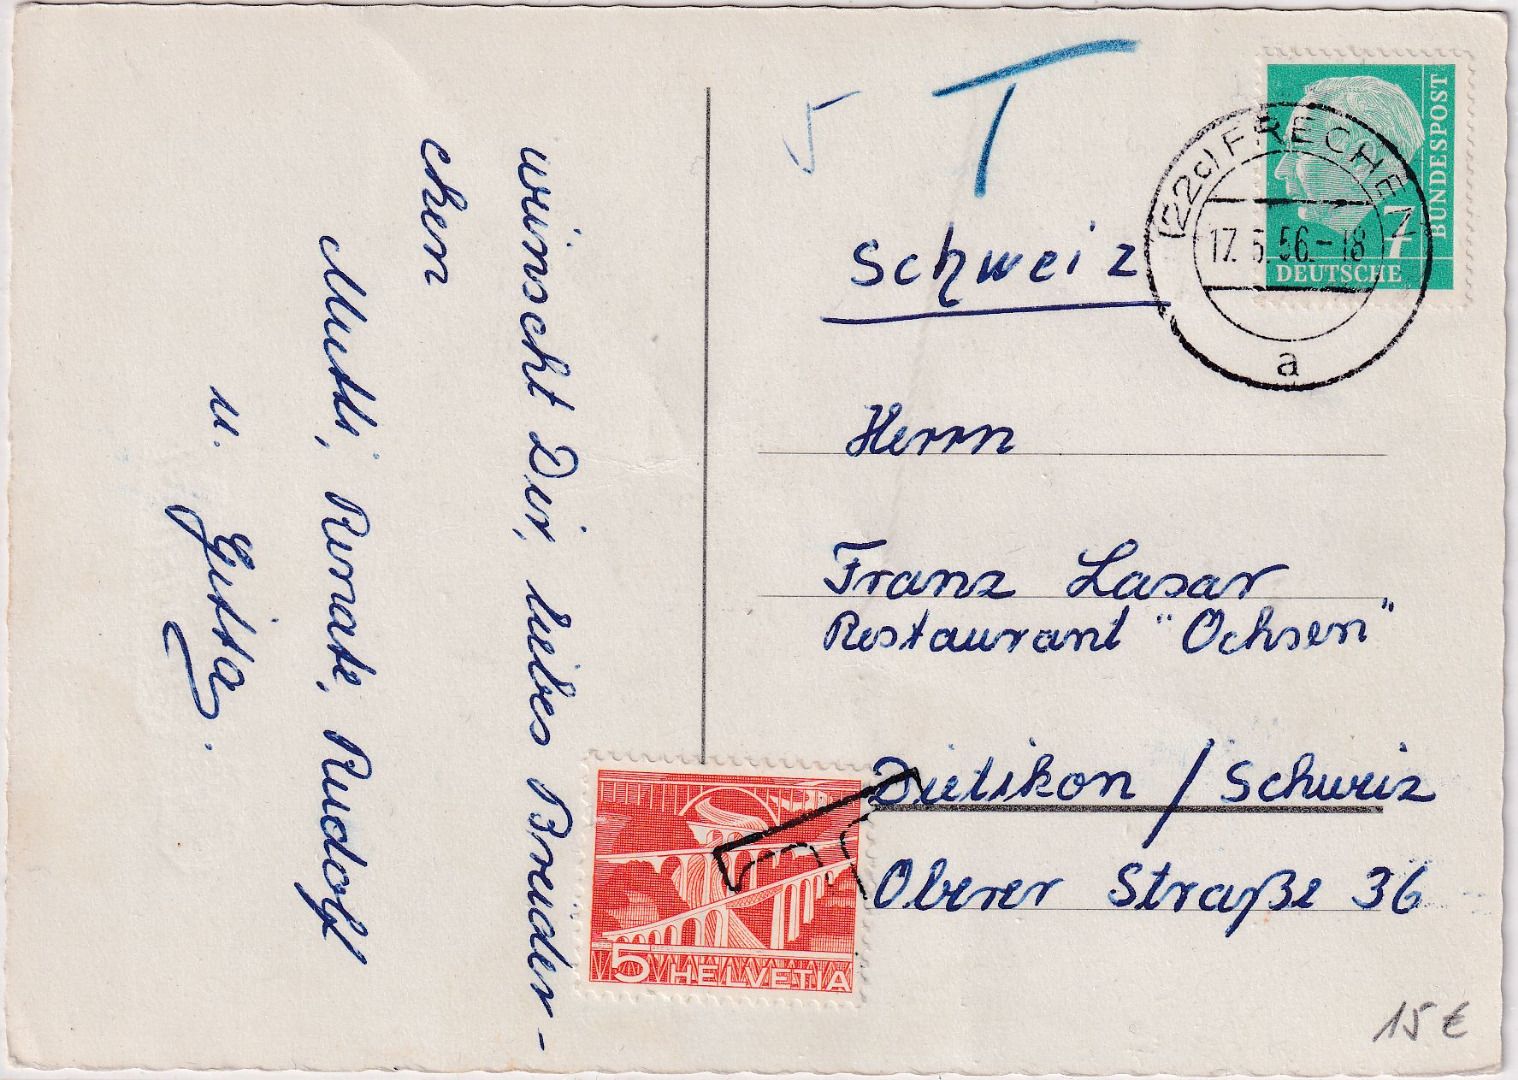 wünscht Dir, liebes Brüder-
chen
Mutti, Renate, Rudolf
u. Gitta.
5 T
Schweiz
(22c) FRECHEN
17. 5. 56.-18
a
7
BUNDESPOST
DEUTSCHE
Herrn
Franz Lasar
Restaurant "Ochsen"
Dietikon / Schweiz
Oberer Straße 36
T
5 HELVETIA
15 €